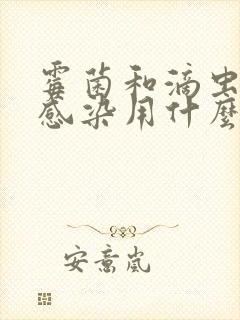 霉菌和滴虫
感染用什麼
安意嵐